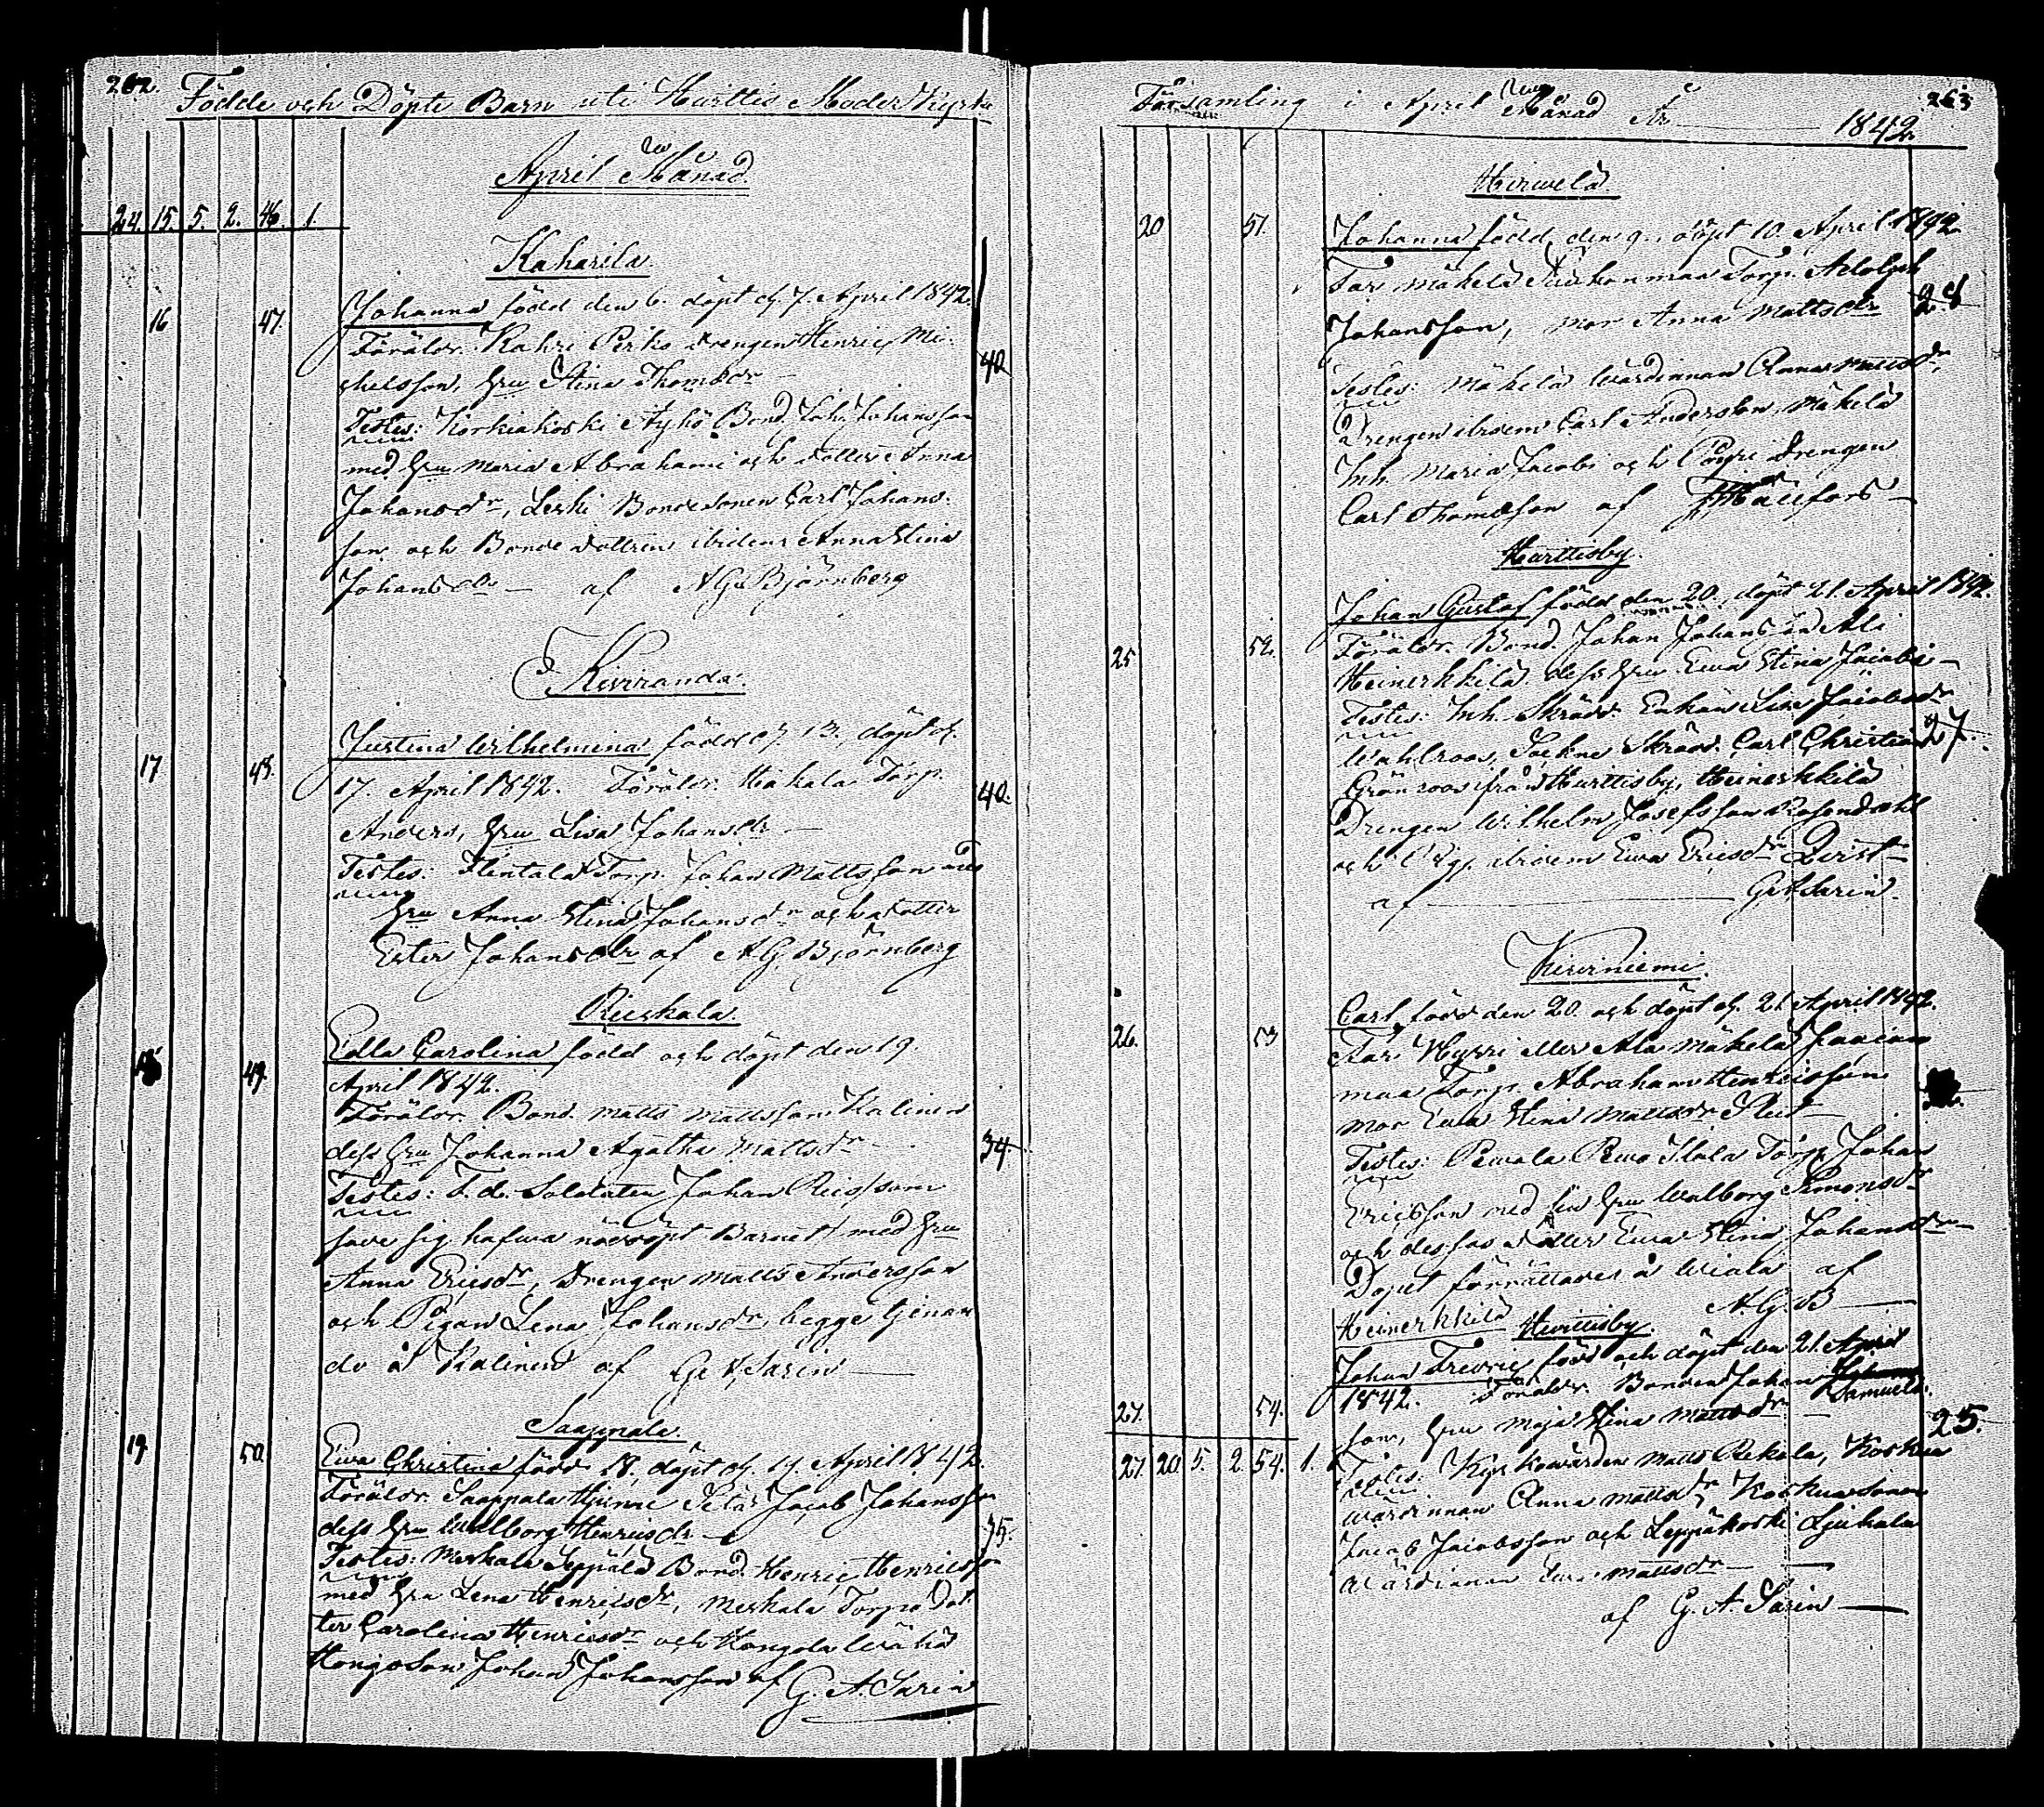 262. Födde och Döpte Barn uti Huittis Moder Kyrko
April Månad.
24. 15. 5. 2. 46. 1.
Kaharila
16 47. Johanna född den 6. döpt d. 7. April 1842.
Föräldr. Kahri Perko Drengen Henric Mi-
chelsson, hru Stina Thomsdr 40
Testes: Korkiakoski Äyhö Bond. Joh. Johansson
med hru Maria Abrahami och dotter Anna
Johansdr, Leski Bondesonen Carl Johans-
son och Bonde dottren ibidem Anna Stina
Johansdr — af A G Björnberg
Kiviranda.
17 48. Justina Wilhelmina född d. 13, döpt d.
17. April 1842. Föräldr. Hakala Torp. 40.
Anders, hru Lisa Johansdr —
Testes: Torp. Johan Mattsson med
hru Anna Stina Johansdr och dotter
Ester Johansdr af A G. Björnberg
Rieskala.
18 49. Edla Carolina född och döpt den 19.
April 1842.
Föräldr. Bond. Matts Mattsson Kalinen
dess hru Johanna Agatha Mattsdr — 34.
Testes: f. d. Soldaten Johan Riis/som
save sig hafwa nöddöpt Barnet/ med hru
Anna Ericsdr, Drengen Matts Andersson
och Pigan Lena Johansdr, begge tjenan
de å Kalinen af G A Sarin —
Sappala.
19 50. Ewa Christina född 18. döpt d. 19. April 1842.
Föräldr. Sappala Jacob Johansson
dess hru Walborg Henricsdr — 35.
Testes: Meskala Seppälä Bond. Henric Henricsson
med hru Lena Henricsdr, Meskala Torpe Dot-
ter Carolina Henricsdr och
Johan Johansson af G. A. Sarin
Församling i April Månad År 1842. 263
Hirwelä
20 51. Johanna född den 9., döpt 10. April 1842
Far Mäkelä Torp. Adolph
Johansson, mor Anna Mattsdr 28
Testes: Mäkelä Wärdinnan Anna Mattsdr,
Drengen ibidem Carl Andersson, Mäkelä
Inh. Maria Jacobi och Drengen
Carl Thomasson af
Huittisby.
Johan Gustaf född den 20. döpt 21. April 1842.
25 52. Föräldr. Bond. Johan Johansson Ali
Heinerkkilä dess hru Ewa Stina Jacobi —
Testes: Inh. Skrädd. Enkan Lisa Jacobsdr
Wahlroos, Sockne Skrädd. Carl Christian 27.
Grönroos från Huittisby, Heinerkkilä
Drengen Wilhelm Josefsson Rosendahl
och Pig. ibidem Ewa Ericsdr Qvist
af — G A Sarin.
Kiviniemi.
Carl född den 20. och döpt d. 21. April 1842.
26. 53 Far Hyrri eller Ala Mäkelä
maa Torp. Abraham Henricsson
mor Ewa Stina Mattsdr
Testes: Torp. Johan
Ericsson med sin hru Walborg Simonsdr
och dessas dotter Ewa Stina Johansdr —
Dopet förrättades å Wiala af
Heinerkkilä Huittisby. A. G. B —
Johan Fredric född och döpt den 21. April
1842. Föräldr. Bonden Johan Samuels-
27. 54. son, hru Maja Stina Mattsdr — 25.
27. 20. 5. 2. 54. 1. Testes: Kyrkowärden Matts Rekola, Koskua
wärdinnan Anna Mattsdr Koskua Sonen
Jacob Jacobsson och Leppäkoski Ljuhala
wärdinnan Mattsdr —
af G. A. Sarin —